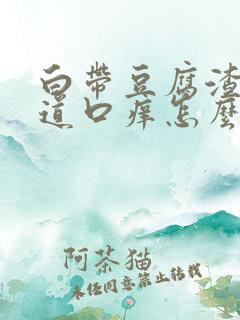 白带豆腐渣
道口痒怎麽
阿茶猫
未经同意禁止转载